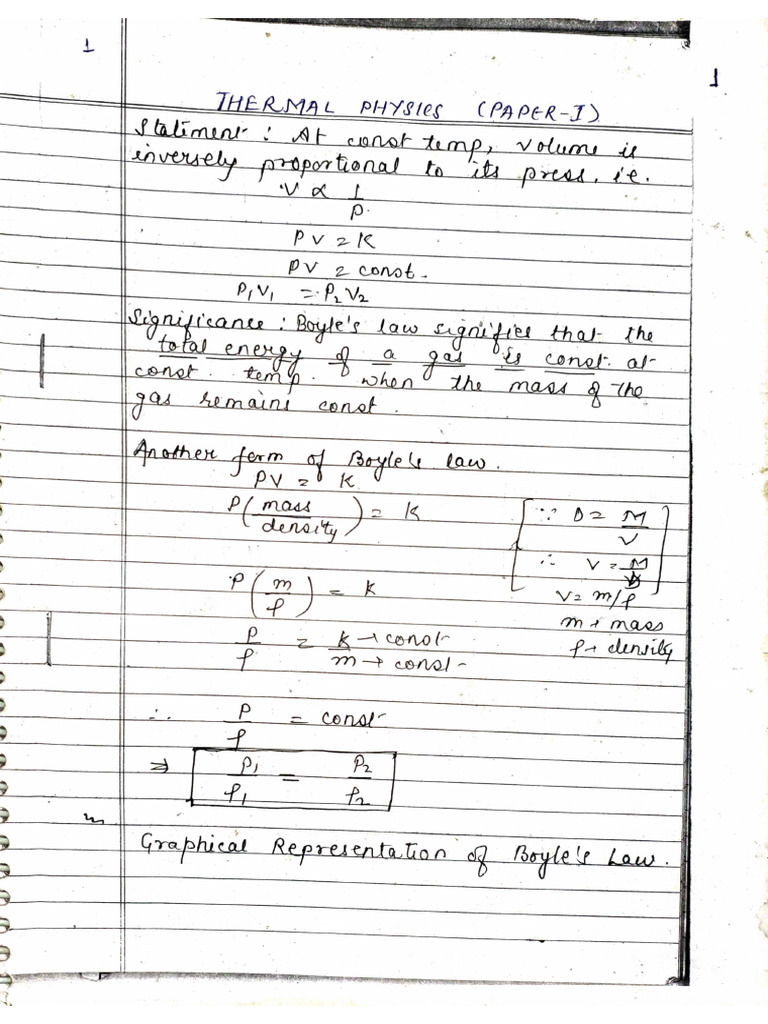 1
1
THERMAL PHYSICS (PAPER-I)
Statement : At const temp, volume is
inversely proportional to its press. i.e.
V ∝ 1/P
PV = K
PV = const.
P₁V₁ = P₂V₂
Significance : Boyle's law signifies that the
total energy of a gas is const. at
const. temp. when the mass of the
gas remains const.
Another form of Boyle's law.
PV = K
P(mass/density) = K
[∵ D = M/V
∴ V = M/D]
P(m/ρ) = K
V = m/ρ
m → mass
P/ρ = K → const / m → const
ρ → density
∴ P/ρ = const
⇒ P₁/ρ₁ = P₂/ρ₂
Graphical Representation of Boyle's Law.